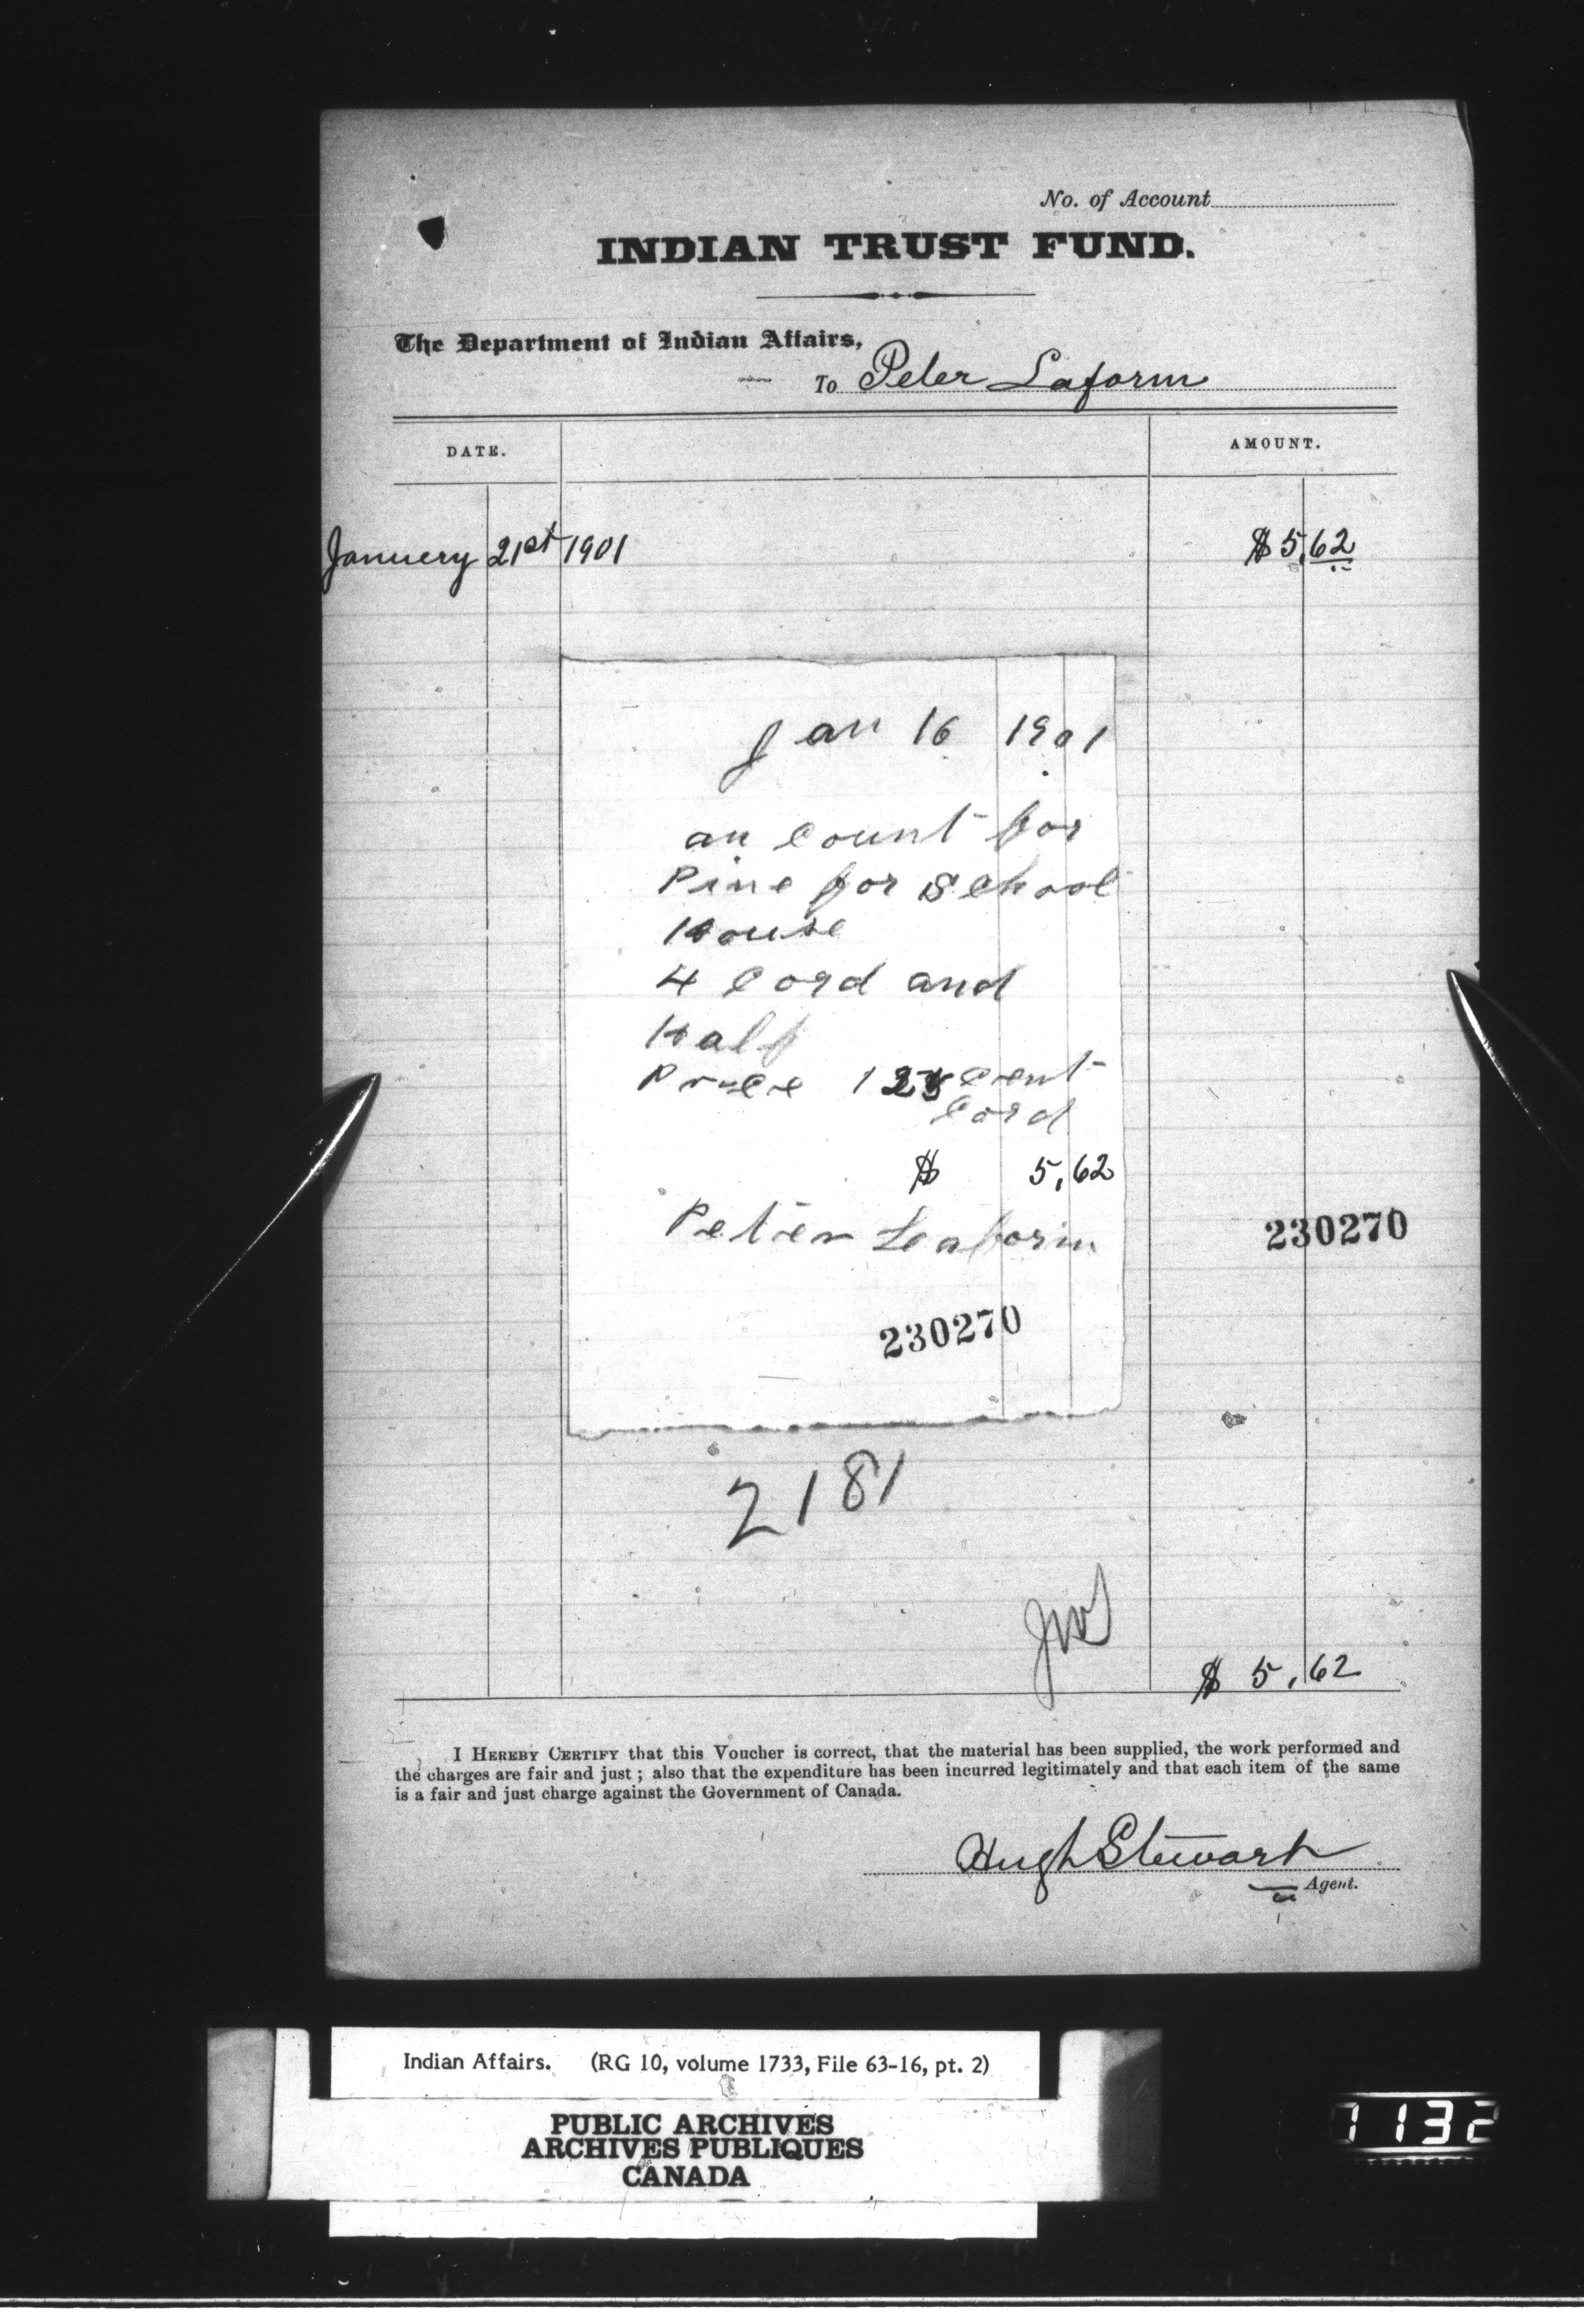 No. of Account
INDIAN TRUST FUND.
The Department of Indian Affairs,
To Peter Laform
DATE.
AMOUNT.
Januery 21st 1901
$5,62
Jan 16 1901
an count for
Pine for School
House
4 Cord and
Half
Price 125 cent
Cord
$ 5,62
Peter Laform
230270
230270
2181
$ 5,62
I HEREBY CERTIFY that this Voucher is correct, that the material has been supplied, the work performed and
the charges are fair and just ; also that the expenditure has been incurred legitimately and that each item of the same
is a fair and just charge against the Government of Canada.
Hugh Stewart
Agent.
Indian Affairs. (RG 10, volume 1733, File 63-16, pt. 2)
PUBLIC ARCHIVES
ARCHIVES PUBLIQUES
CANADA
1132